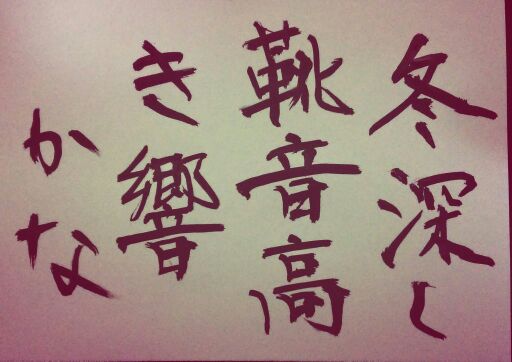 冬深し
靴音高
き響
かな